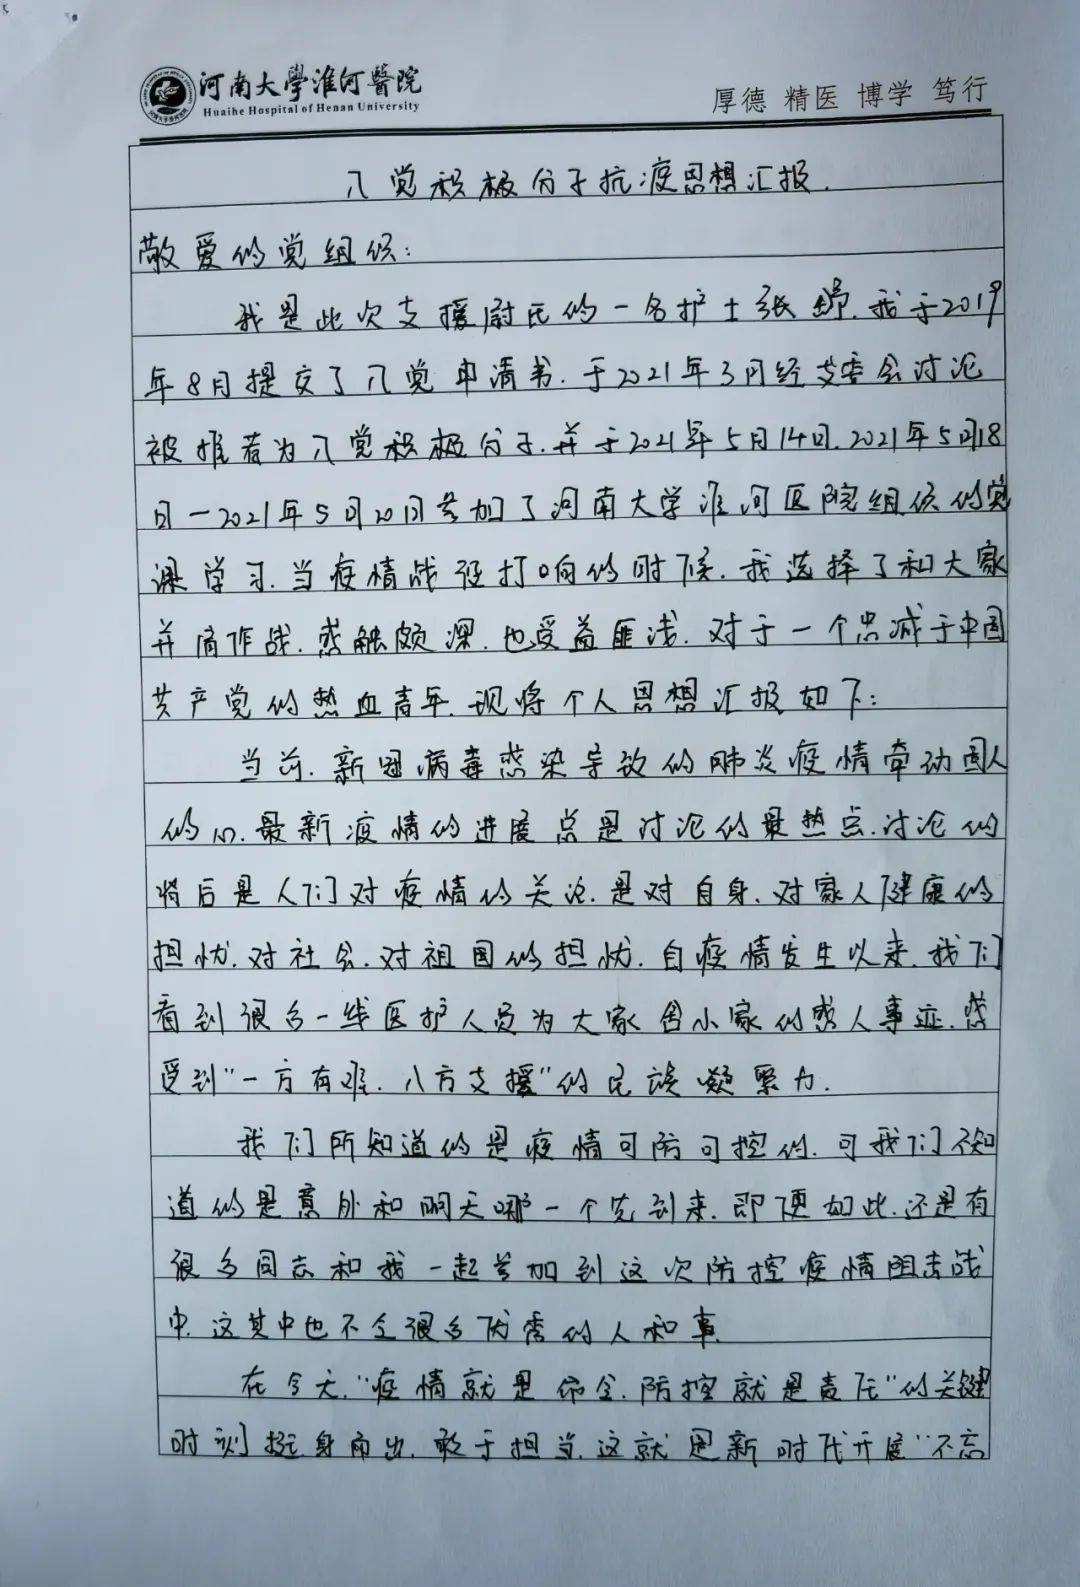 河南大學淮河醫院
Huaihe Hospital of Henan University
厚德 精医 博学 笃行
入党积极分子抗疫思想汇报.
敬爱的党组织:
我是此次支援尉氏的一名护士张舒.我于2019
年8月提交了入党申请书.于2021年3月经支委会讨论
被推荐为入党积极分子.并于2021年5月14日.2021年5月18
日一2021年5月20日参加了河南大学淮河医院组织的党
课学习.当疫情战役打响的时候.我选择了和大家
并肩作战.感触颇深.也受益匪浅.对于一个忠诚于中国
共产党的热血青年.现将个人思想汇报如下:
当前.新冠病毒感染导致的肺炎疫情牵动国人
的心.最新疫情的进展总是讨论的最热点.讨论的
背后是人们对疫情的关注.是对自身.对家人健康的
担忧.对社会.对祖国的担忧.自疫情发生以来.我们
看到很多一线医护人员为大家舍小家的感人事迹.感
受到"一方有难.八方支援"的民族凝聚力.
我们所知道的是疫情可防可控的.可我们不知
道的是意外和明天哪一个先到来.即便如此.还是有
很多同志和我一起参加到这次防控疫情阻击战
中.这其中也不乏很多优秀的人和事.
在今天."疫情就是命令.防控就是责任"的关键
时刻挺身而出.敢于担当.这就是新时代开展"不忘